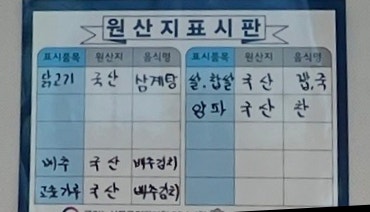 원산지표시판
표시품목 원산지 음식명 표시품목 원산지 음식명
닭고기 국산 삼계탕 쌀.찹쌀 국산 밥,죽
양파 국산 찬
배추 국산 배추김치
고춧가루 국산 배추김치